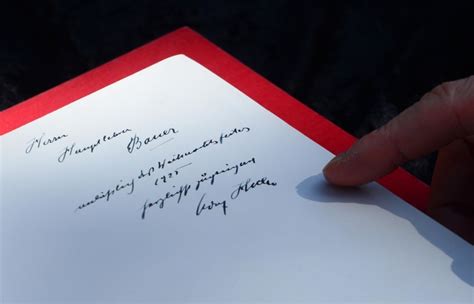 Herrn
Hauptlehrer
Bauer
anläßlich des Weihnachtsfestes
1925
herzlichst zugeeignet